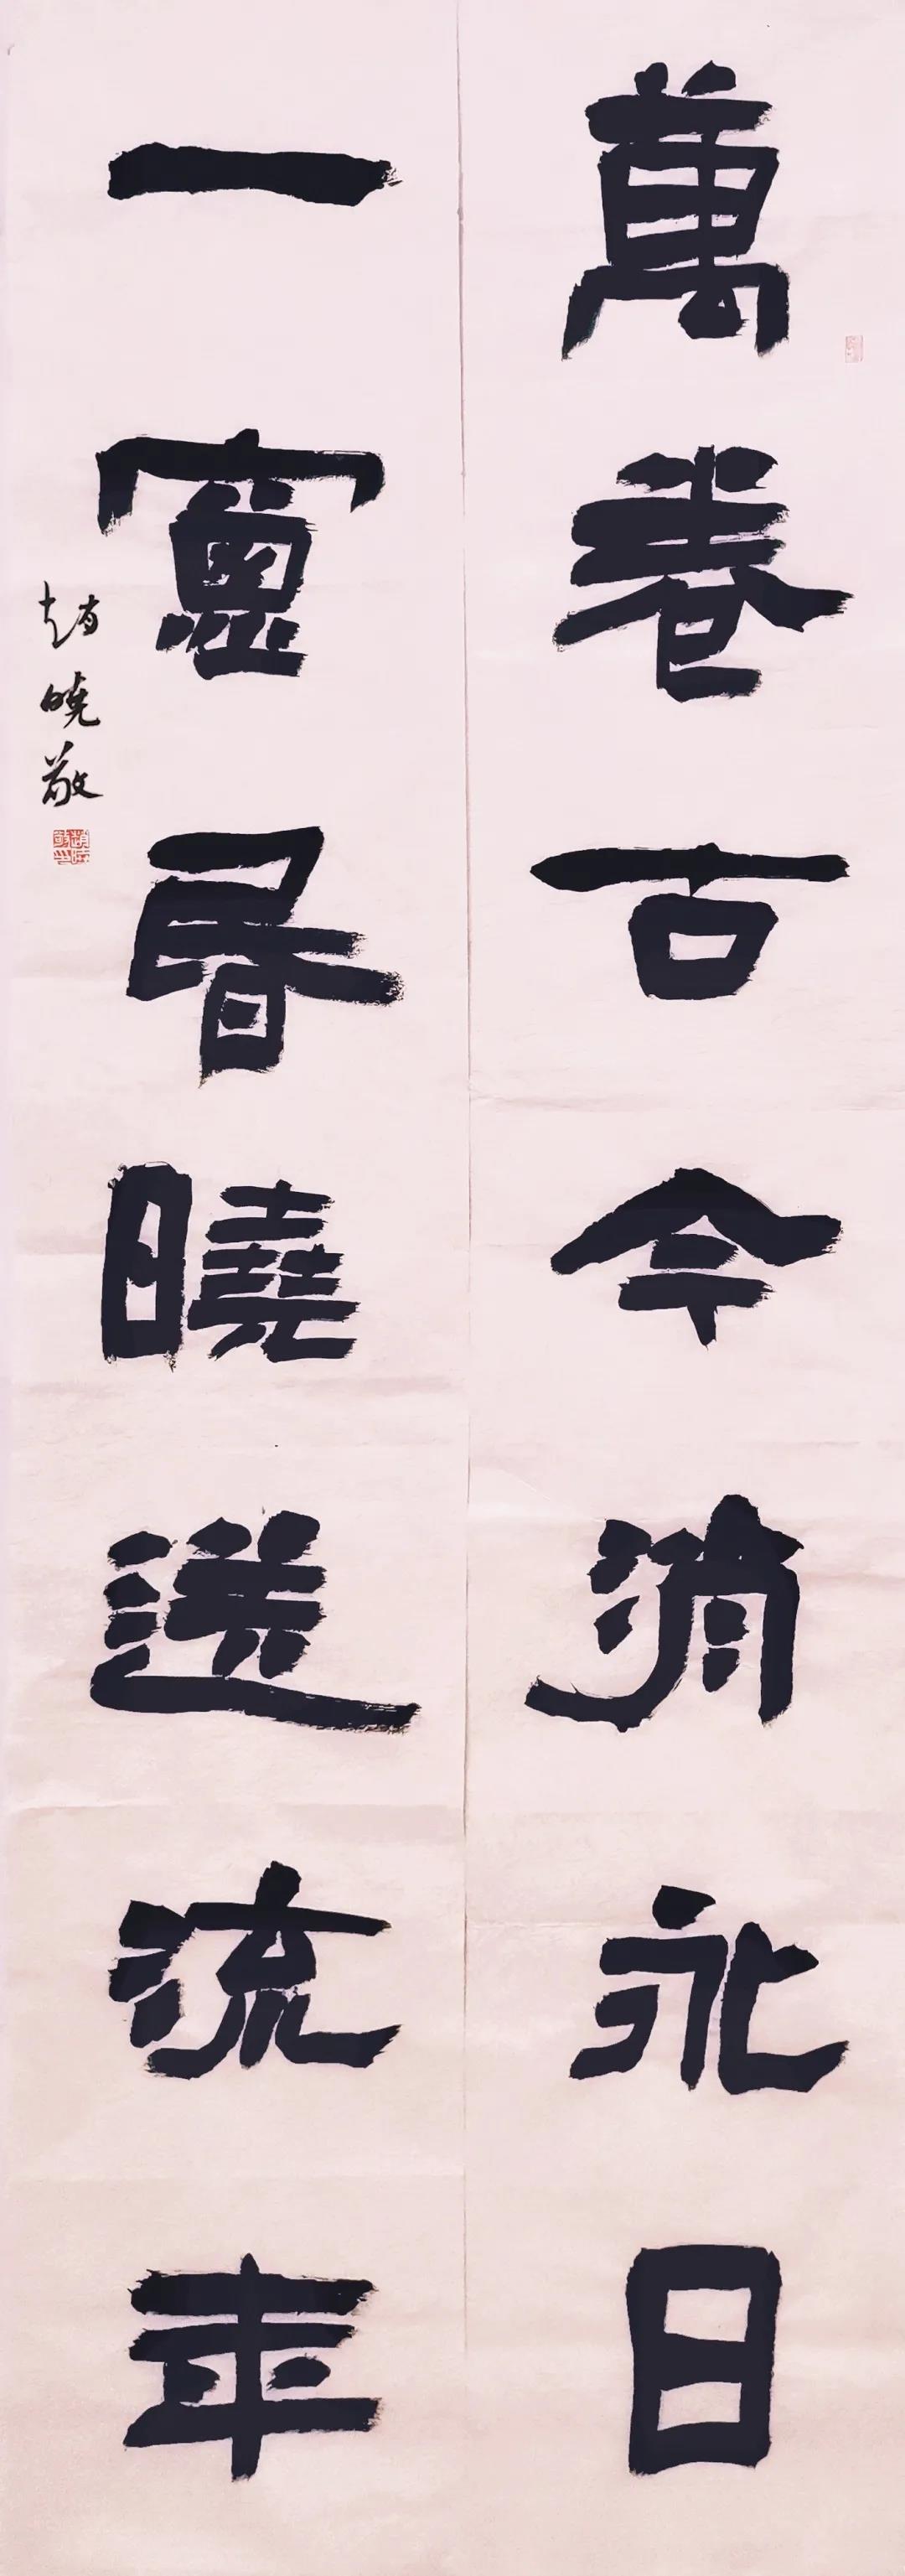 萬卷古今消永日
一窻昏曉送流年
趙曉敬